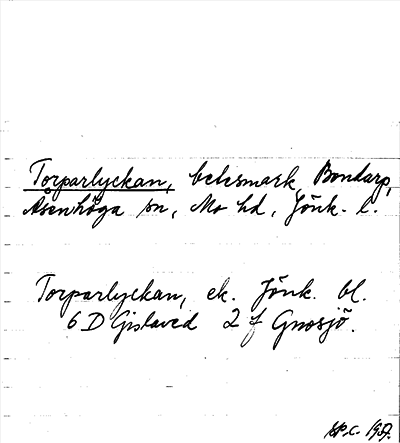 Torparlyckan, betesmark, Bondarp,
Åsenhöga sn, Mo hd, Jönk. l.
Torparlyckan, ek. Jönk. bl.
6 D Gislaved 2 f Gnosjö.
1957.